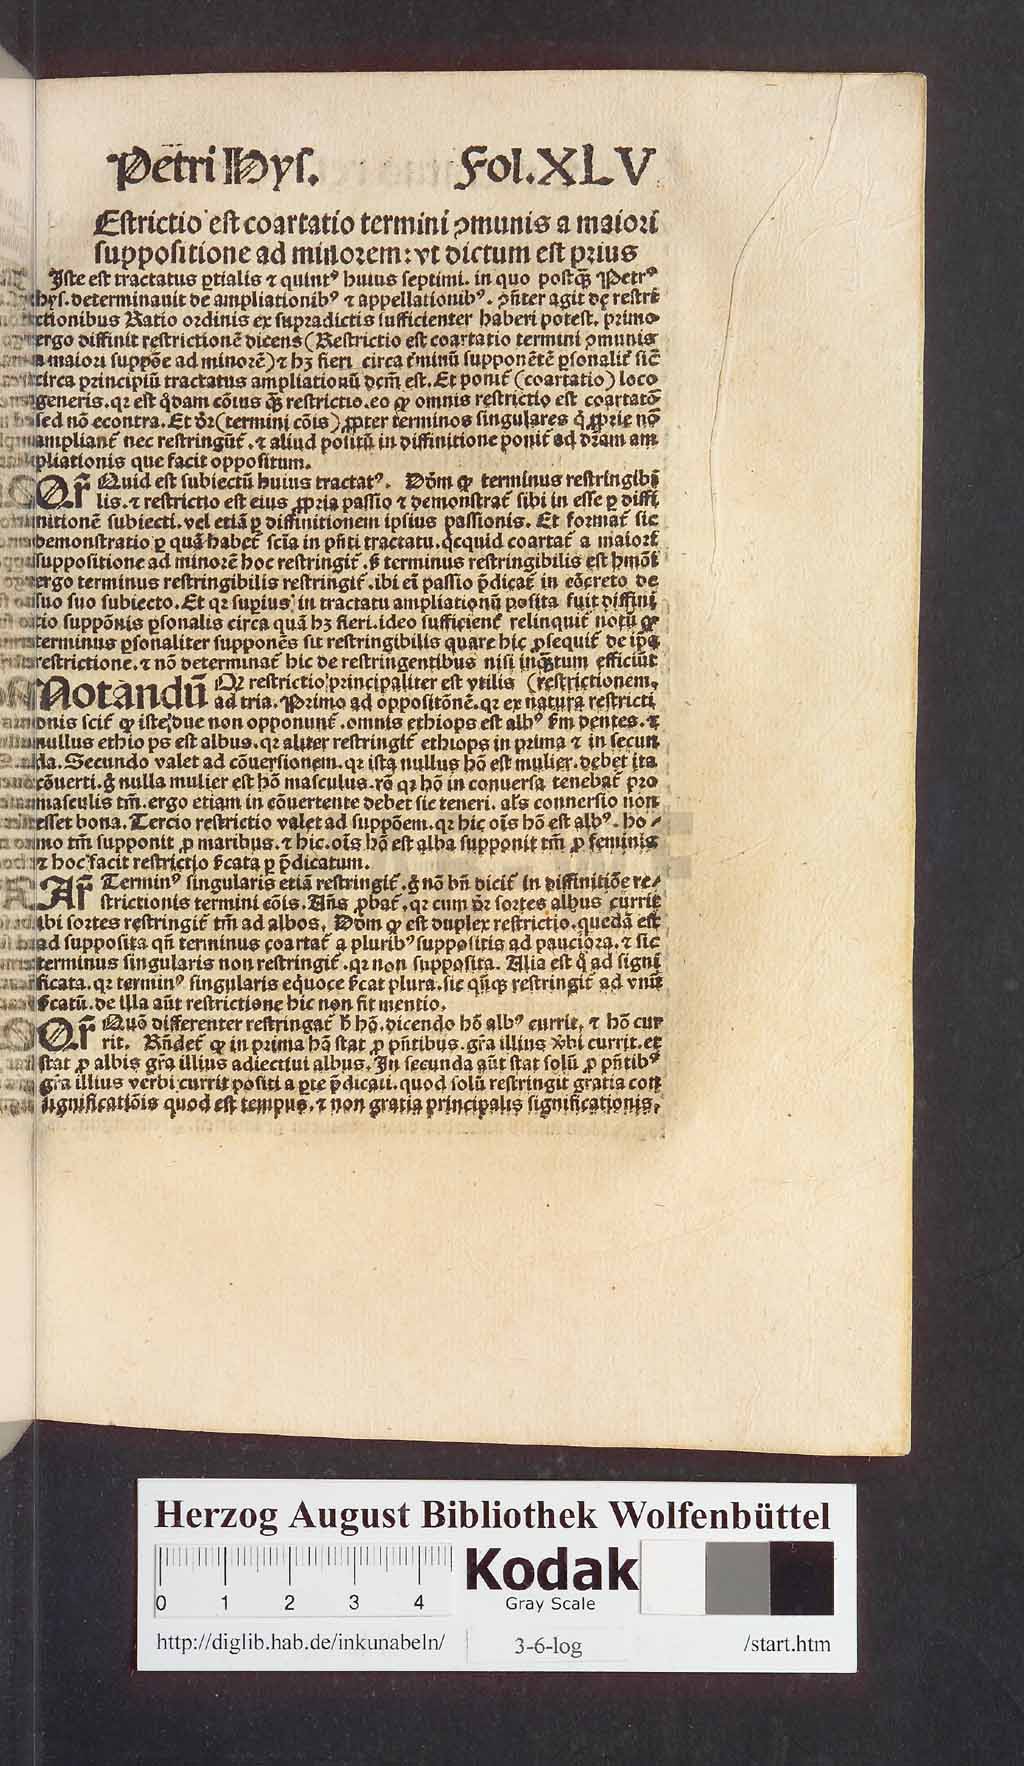 Petri Hyſ. Fol. XLV
Eſtrictio eſt coartatio termini ꝯmunis a maiori
ſuppoſitione ad minorem: vt dictum eſt prius
Iſte eſt tractatus ꝑtialis ⁊ quintꝰ huius ſeptimi. in quo poſtꝙ̃ Petrꝰ
hyſ. determinauit de ampliationibꝰ ⁊ appellationibꝰ. ꝯñter agit de reſtri
ctionibus Ratio ordinis ex ſupradictis ſufficienter haberi poteſt. primo
ergo diffinit reſtrictionē dicens (Reſtrictio eſt coartatio termini ꝯmunis
a maiori ſuppōe ad minorē) ⁊ hꝫ fieri circa t̃minū ſupponētē ꝑſonalit̃ ſic̃
circa principiū tractatus ampliationū dcm̄ eſt. Et ponit̃ (coartatio) loco
generis. qꝛ eſt q̇dam cōius ꝙ̃ reſtrictio. eo ꝙ omnis reſtrictio eſt coartatō
ſed nō econtra. Et dr̄ (termini cōis) ꝓpter terminos ſingulares q̇ ꝓprie nō
ampliant̃ nec reſtringūt̃. ⁊ aliud poſitū in diffinitione ponit̃ ad dr̄am am
pliationis que facit oppoſitum.
Qr̄ Quid eſt ſubiectū huius tractatꝰ. Dōm ꝙ terminus reſtringibi
lis. ⁊ reſtrictio eſt eius ꝓpria paſſio ⁊ demonſtrat̃ ſibi in eſſe ꝑ diffi
nitionē ſubiecti. vel etiā ꝑ diffinitionem ipſius paſſionis. Et format̃ ſic
demonſtratio ꝑ quā habet̃ ſcīa in pn̄ti tractatu. qcquid coartat̃ a maiori
ſuppoſitione ad minorē hoc reſtringit̃. ſꝫ terminus reſtringibilis eſt hmōi
ergo terminus reſtringibilis reſtringit̃. ibi eī paſſio p̄dicat̃ in cōcreto de
ſuo ſuo ſubiecto. Et qꝛ ſuꝑius in tractatu ampliationū poſita fuit diffini
tio ſuppōnis ꝑſonalis circa quā hꝫ fieri. ideo ſufficient̃ relinquit̃ notū ꝙ
terminus ꝑſonaliter ſupponēs ſit reſtringibilis quare hic ꝓſequit̃ de ip̄a
reſtrictione. ⁊ nō determinat̃ hic de reſtringentibus niſi inꝙ̃tum efficiūt
Notandū Qꝛ reſtrictio principaliter eſt vtilis (reſtrictionem.
ad tria. Primo ad oppoſitōnē. qꝛ ex natura reſtricti
onis ſcit̃ ꝙ iſte due non opponunt̃. omnis ethiops eſt albꝰ ſm̄ dentes. ⁊
nullus ethio ps eſt albus. qꝛ aliter reſtringit̃ ethiops in prima ⁊ in ſecun
da. Secundo valet ad cōuerſionem. qꝛ iſta nullus hō eſt mulier. debet ita
cōuerti. g̊ nulla mulier eſt hō maſculus. rō qꝛ hō in conuerſa tenebat̃ pro
maſculis tm̄. ergo etiam in cōuertente debet ſic teneri. alſ̄ connerſio non
eſſet bona. Tercio reſtrictio valet ad ſuppōem. qꝛ hic oīs hō eſt albꝰ. ho⸗
mo tm̄ ſupponit ꝓ maribus. ⁊ hic. oīs hō eſt alba ſupponit tm̄ ꝓ feminis
⁊ hoc facit reſtrictio ſcata ꝑ p̄dicatum.
Ar̄ Terminꝰ ſingularis etiā reſtringit̃. g̊ nō bn̄ dicit̃ in diffinitiōe re⸗
ſtrictionis termini cōis. Añs ꝓbat̃. qꝛ cum dr̄ ſortes albus currit
ibi ſortes reſtringit̃ tm̄ ad albos. Dōm ꝙ eſt duplex reſtrictio. quedā eſt
ad ſuppoſita qn̄ terminus coartat̃ a pluribꝰ ſuppoſitis ad pauciora. ⁊ ſic
terminus ſingularis non reſtringit̃. qꝛ non ſuppoſita. Alia eſt q̇ ad ſigni
ficata. qꝛ terminꝰ ſingularis eq̇uoce ſcat plura. ſic qn̄qꝫ reſtringit̃ ad vnū
ſcatū. de illa aūt reſtrictione hic non fit mentio.
Qr̄ Quō differenter reſtringat̃ ly hō. dicendo hō albꝰ currit, ⁊ hō cur
rit. Rn̄det̃ ꝙ in prima hō ſtat ꝓ pn̄tibus. gr̄a illius v̄bi currit. et
ſtat ꝓ albis gr̄a illius adiectiui albus. In ſecunda aūt ſtat ſolū ꝓ pn̄tibꝰ
gr̄a illius verbi currit poſiti a ꝑte p̄dicati. quod ſolū reſtringit gratia con
ſignificatiōis quod eſt tempus. ⁊ non gratia principalis ſignificationis.
Herzog August Bibliothek Wolfenbüttel
0 1 2 3 4
Kodak
Gray Scale
http://diglib.hab.de/inkunabeln/ 3-6-log /start.htm